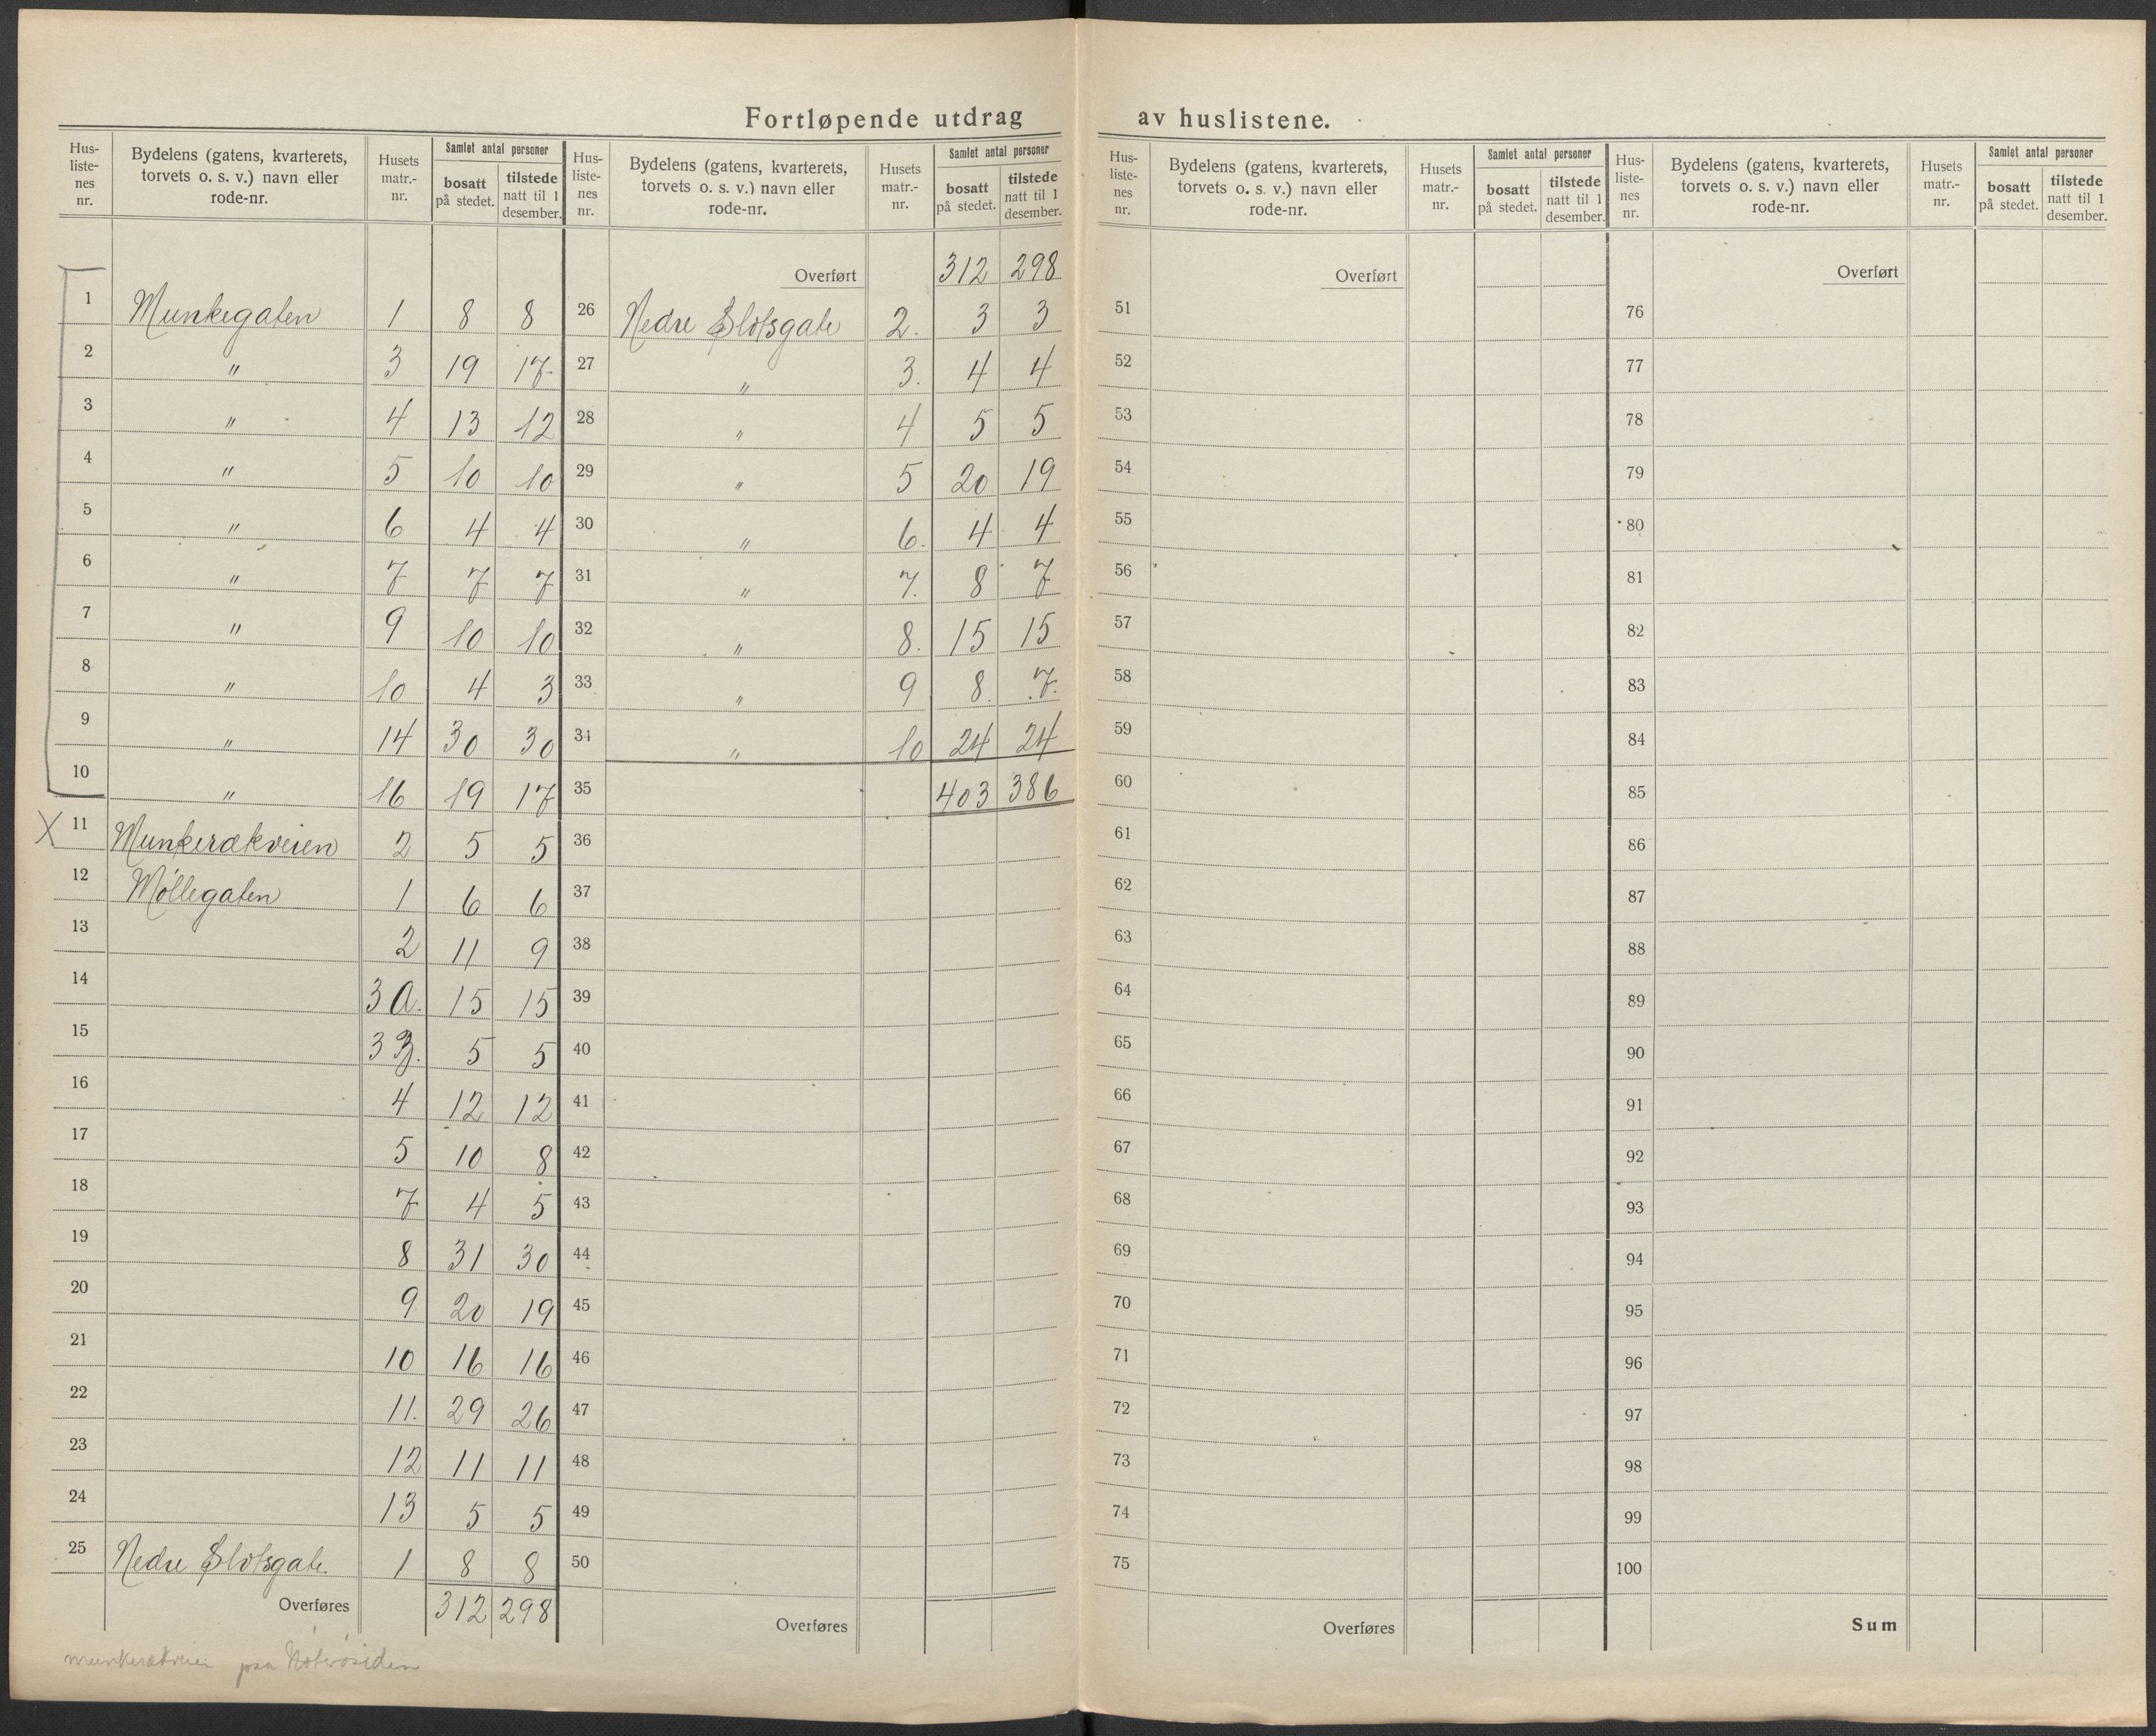 Fortløpende utdrag av huslistene.
Hus-listenes nr. | Bydelens (gatens, kvarterets, torvets o. s. v.) navn eller rode-nr. | Husets matr.-nr. | Samlet antal personer | bosatt på stedet. | tilstede natt til 1 desember.
1 Munkegaten 1 8 8
2 " 3 19 17
3 " 4 13 12
4 " 5 10 10
5 " 6 4 4
6 " 7 7 7
7 " 9 10 10
8 " 10 4 3
9 " 14 30 30
10 " 16 19 17
X 11 Munkerækveien 2 5 5
12 Møllegaten 1 6 6
13 2 11 9
14 3 A. 15 15
15 3 B. 5 5
16 4 12 12
17 5 10 8
18 7 4 5
19 8 31 30
20 9 20 19
21 10 16 16
22 11. 29 26
23 12 11 11
24 13 5 5
25 Nedre Slotsgate 1 8 8
Overføres 312 298
munkerækveien paa Nøterøsiden
Hus-listenes nr. | Bydelens (gatens, kvarterets, torvets o. s. v.) navn eller rode-nr. | Husets matr.-nr. | Samlet antal personer | bosatt på stedet. | tilstede natt til 1 desember.
Overført 312 298
26 Nedre Slotsgate 2. 3 3
27 " 3. 4 4
28 " 4 5 5
29 " 5 20 19
30 " 6. 4 4
31 " 7. 8 7
32 " 8. 15 15
33 " 9 8. 7.
34 " 10 24 24
35 403 386
36
37
38
39
40
41
42
43
44
45
46
47
48
49
50
Overføres
Hus-listenes nr. | Bydelens (gatens, kvarterets, torvets o. s. v.) navn eller rode-nr. | Husets matr.-nr. | Samlet antal personer | bosatt på stedet. | tilstede natt til 1 desember.
Overført
51
52
53
54
55
56
57
58
59
60
61
62
63
64
65
66
67
68
69
70
71
72
73
74
75
Overføres
Hus-listenes nr. | Bydelens (gatens, kvarterets, torvets o. s. v.) navn eller rode-nr. | Husets matr.-nr. | Samlet antal personer | bosatt på stedet. | tilstede natt til 1 desember.
Overført
76
77
78
79
80
81
82
83
84
85
86
87
88
89
90
91
92
93
94
95
96
97
98
99
100
Sum